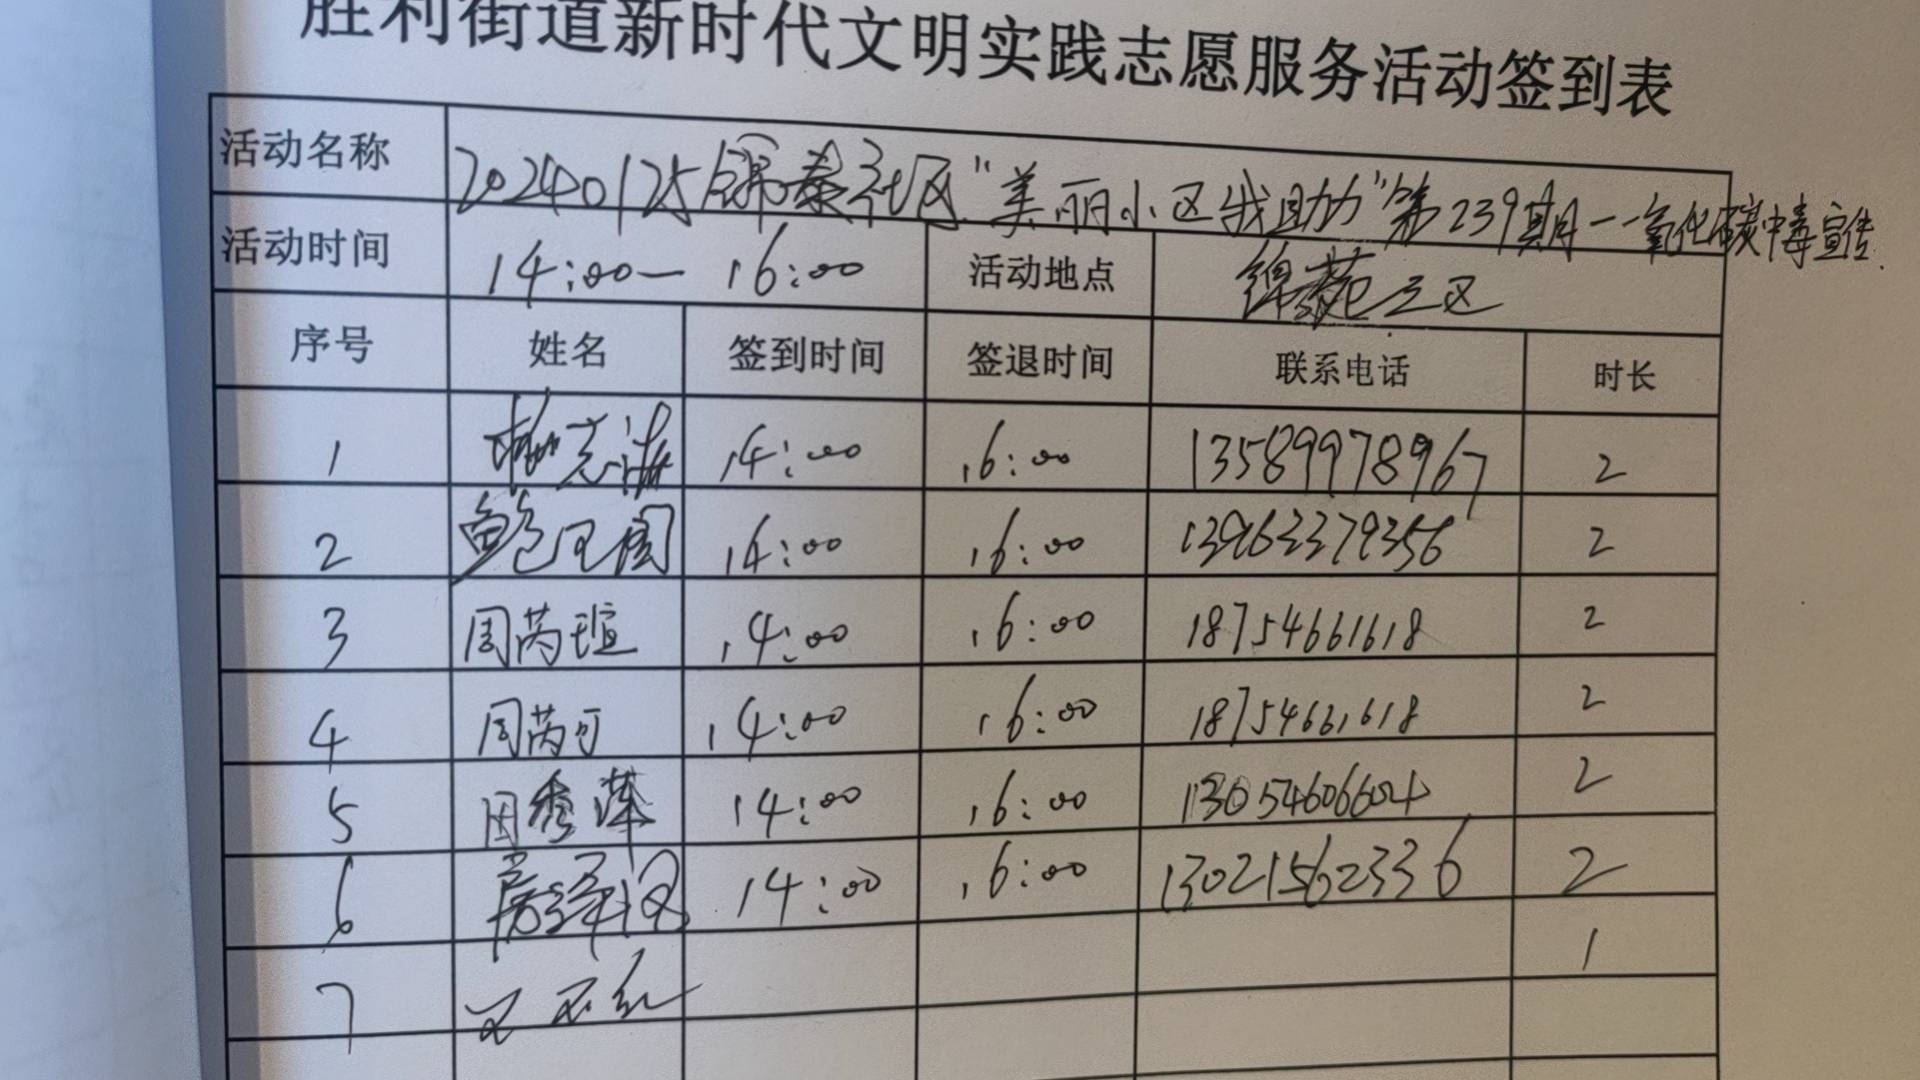 胜利街道新时代文明实践志愿服务活动签到表
活动名称 20240125锦泰社区“美丽小区我助力”第239期一一氧化碳中毒宣传
活动时间 14:00— 16:00 活动地点 锦苑三区
序号 姓名 签到时间 签退时间 联系电话 时长
1 14:00 16:00 13589978967 2
2 14:00 16:00 13963379356 2
3 周芮瑄 14:00 16:00 18754661618 2
4 周芮可 14:00 16:00 18754661618 2
5 田秀萍 14:00 16:00 13054606604 2
6 14:00 16:00 13021562336 2
7 1